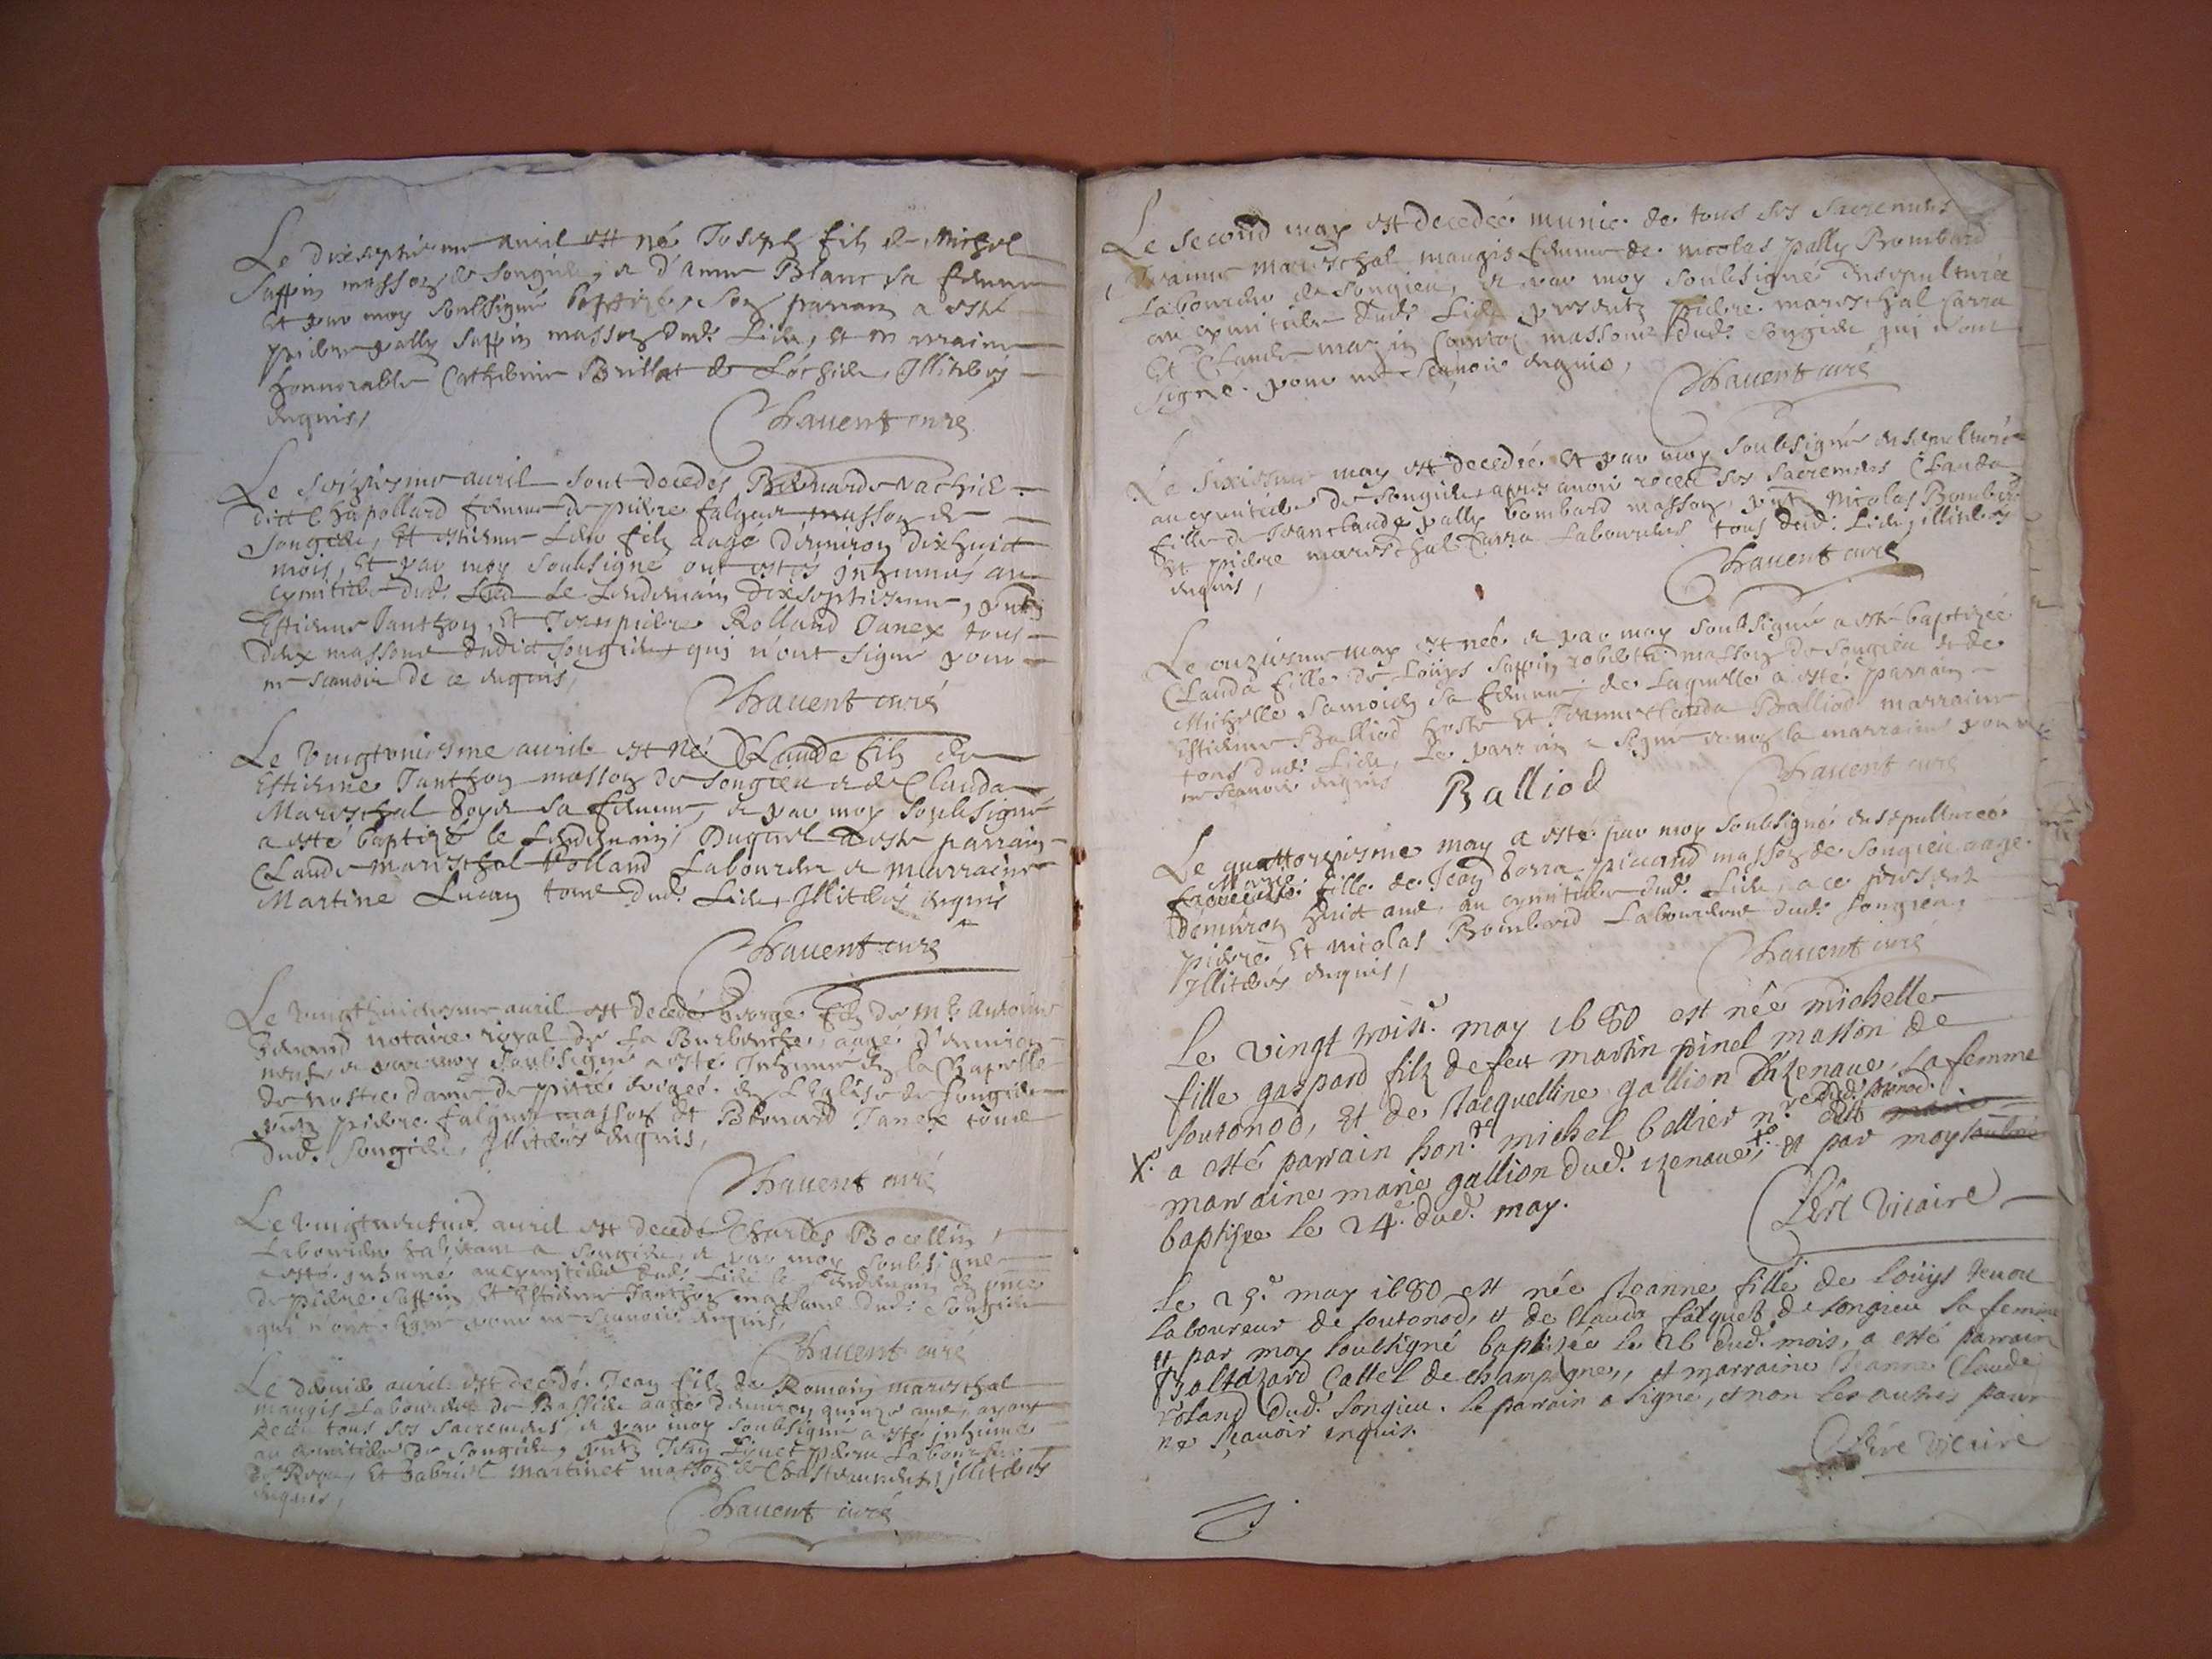 Le dixseptiesme auril est né Joseph filz de Michel
Suffin masson de Songieu, et d'Anne Blanc sa femme
Et par moy soubsigné baptizé, son parrain a esté
pierre pally Suffin masson dud. Lieu, et marraine
honnorable Catherine Brillat de Lochieu, Illiterés
enquis,
Chauent curé
Le seiziesme auril sont decedés Bernarde vachier
ditt Chapollard femme de pierre falquet masson de
Songieu, Et estienne leur filz aagé d'enuiron dixhuict
mois, Et par moy soubsigné ont estés inhumés au
cymitiere dud. Lieu le Lendemain dixseptiesme, pntz
Estienne Janthon, Et Jeanpierre Rolland Janex tous
deux massons dudict Songieu qui n'ont signé pour
ne scauoir de ce enquis,
Chauent curé
Le vingtuniesme auril est né Claude filz de
Estienne Janthon masson de Songieu et de Clauda
Mareschal Boyer sa femme, et par moy soubsigné
a esté baptizé le Lendemain, Duquel a esté parrain
Claude mareschal Rolland Laboureur et marraine
Martine Lucan tous dud. Lieu, Illiterés enquis
Chauent curé
Le vingthuictiesme auril est decedé George filz de Me Antoine
notaire royal de La Burbanche, aagé d'enuiron
neuf, et par moy soubsigné a esté Inhumé en la Chapelle
de nostre dame de pitié erigée en L'Eglise de songieu
pntz pierre falquet masson et Bernard Janex tous
dud. Songieu, Illiterés enquis,
Chauent curé
Le vingtneufuie. auril est decedé Charles Bocellin,
Laboureur habitant a Songieu, et par moy soubsigné
a esté inhumé au cymitiere dud. Lieu le lendemain en pnce
de pierre Suffin Et Estienne Janthon massons dud. Songieu
qui n'ont signé pour ne scauoir enquis,
Chauent curé
Le dernier auril est decedé Jean filz de Romain mareschal
maugis Laboureur de Bassieu aagé d'enuiron quinze ans, ayant
receu tous ses sacremens, et par moy soubsigné a esté inhumé
au cymitiere de Songieu, pntz Jean Laboureur
Et Gabriel martinet masson de illiterés
enquis,
Chauent curé
Le second may est decedée munie de tous ses sacremens
Jeanne mareschal maugis femme de nicolas pally Bombard
Laboureur de Songieu, et par moy soubsigné ensepulturée
au cymitiere dud. Lieu presentz pierre mareschal Carra
Et Claude mazin masson dud. Songieu qui n'ont
signé pour ne scauoir enquis,
Chauent curé
Le sixiesme may est decedée Et par moy soubsigné ensepulturée
au cymitiere de Songieu apres auoir receu ses sacremens Clauda
fille de Jeanclaude pally bombard masson, pntz Nicolas Bombard
Et pierre mareschal Carra Laboureurs tous dud. Lieu, illiterés
enquis,
Chauent curé
Le onziesme may est née et par moy soubsigné a esté baptizée
Clauda fille de Loüys Suffin masson de Songieu et de
Michelle sa femme de Laquelle a esté parrain
Estienne Balliod hoste Et Jeanne clauda Balliod marraine
tous dud. Lieu, Le parrain a signé et non la marraine pour
ne scauoir enquis
Balliod
Chauent curé
Le quattorziesme may a esté par moy soubsigné ensepulturée
Marie
fille de Jean Carra piccand masson de Songieu aagé
d'enuiron huict ans, au cymitiere dud. Lieu, a ce presentz
pierre Et nicolas Bombard Laboureurs dud. Songieu,
Illiterés enquis,
Chauent curé
Le vingt troisi. may 1680 est née michelle
fille gaspard filz de feu martin pinel masson de
soutonod, Et de Jacquelline gallion d'izenaue, sa femme
a esté parrain hon. michel bellier n.re
marraine marie gallion dud. izenaue, et par moy
baptisee le 24e. dud. may.
Féré Vicaire
Le 25e. may 1680 est née Jeanne fille de loüys
laboureur de soutonod, et de Clauda falquet de songieu sa femme
et par moy soubsigné baptizée le 26 dud. mois, a esté parrain
Baltazard Cattel de champagne, et marraine Jeanne Claude
roland dud. songieu. le parrain a signé, et non les autres pour
ne sçauoir enquis.
Féré vicaire